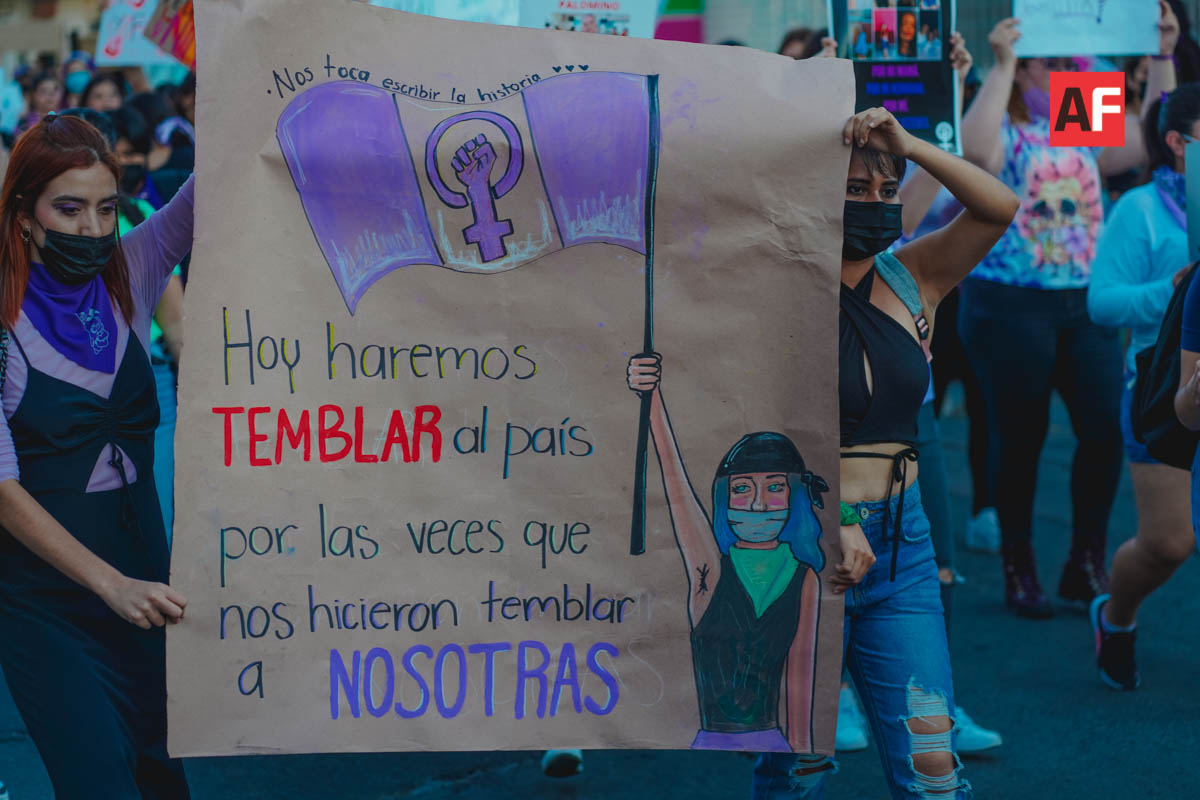 PALOMINO
AF
.Nos toca escribir la historia
Hoy haremos
TEMBLAR al país
por las veces que
nos hicieron temblar
a NOSOTRAS